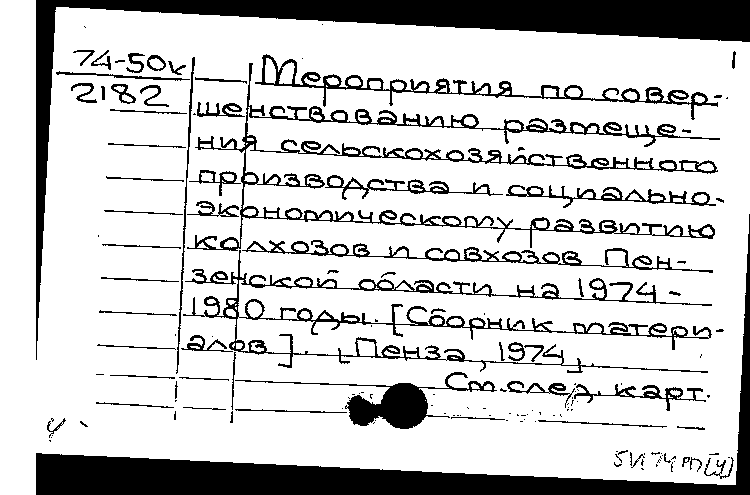 1
74-50к
2182
Мероприятия по совер-
шенствованию размеще-
ния сельскохозяйственного
производства и социально-
экономическому развитию
колхозов и совхозов Пен-
зенской области на 1974-
1980 годы. [Сборник матери-
алов]. [Пенза, 1974].
См. след. карт.
у